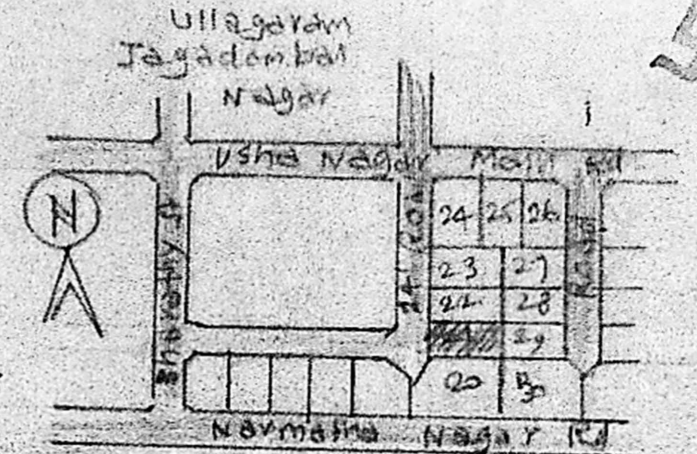 Ullagaram
Jagadambal
Nagar
Usha Nagar Main Rd
N
Bharathy St
24 25 26
Road
23 27
22 28
29
20 30
Narmatha Nagar Rd